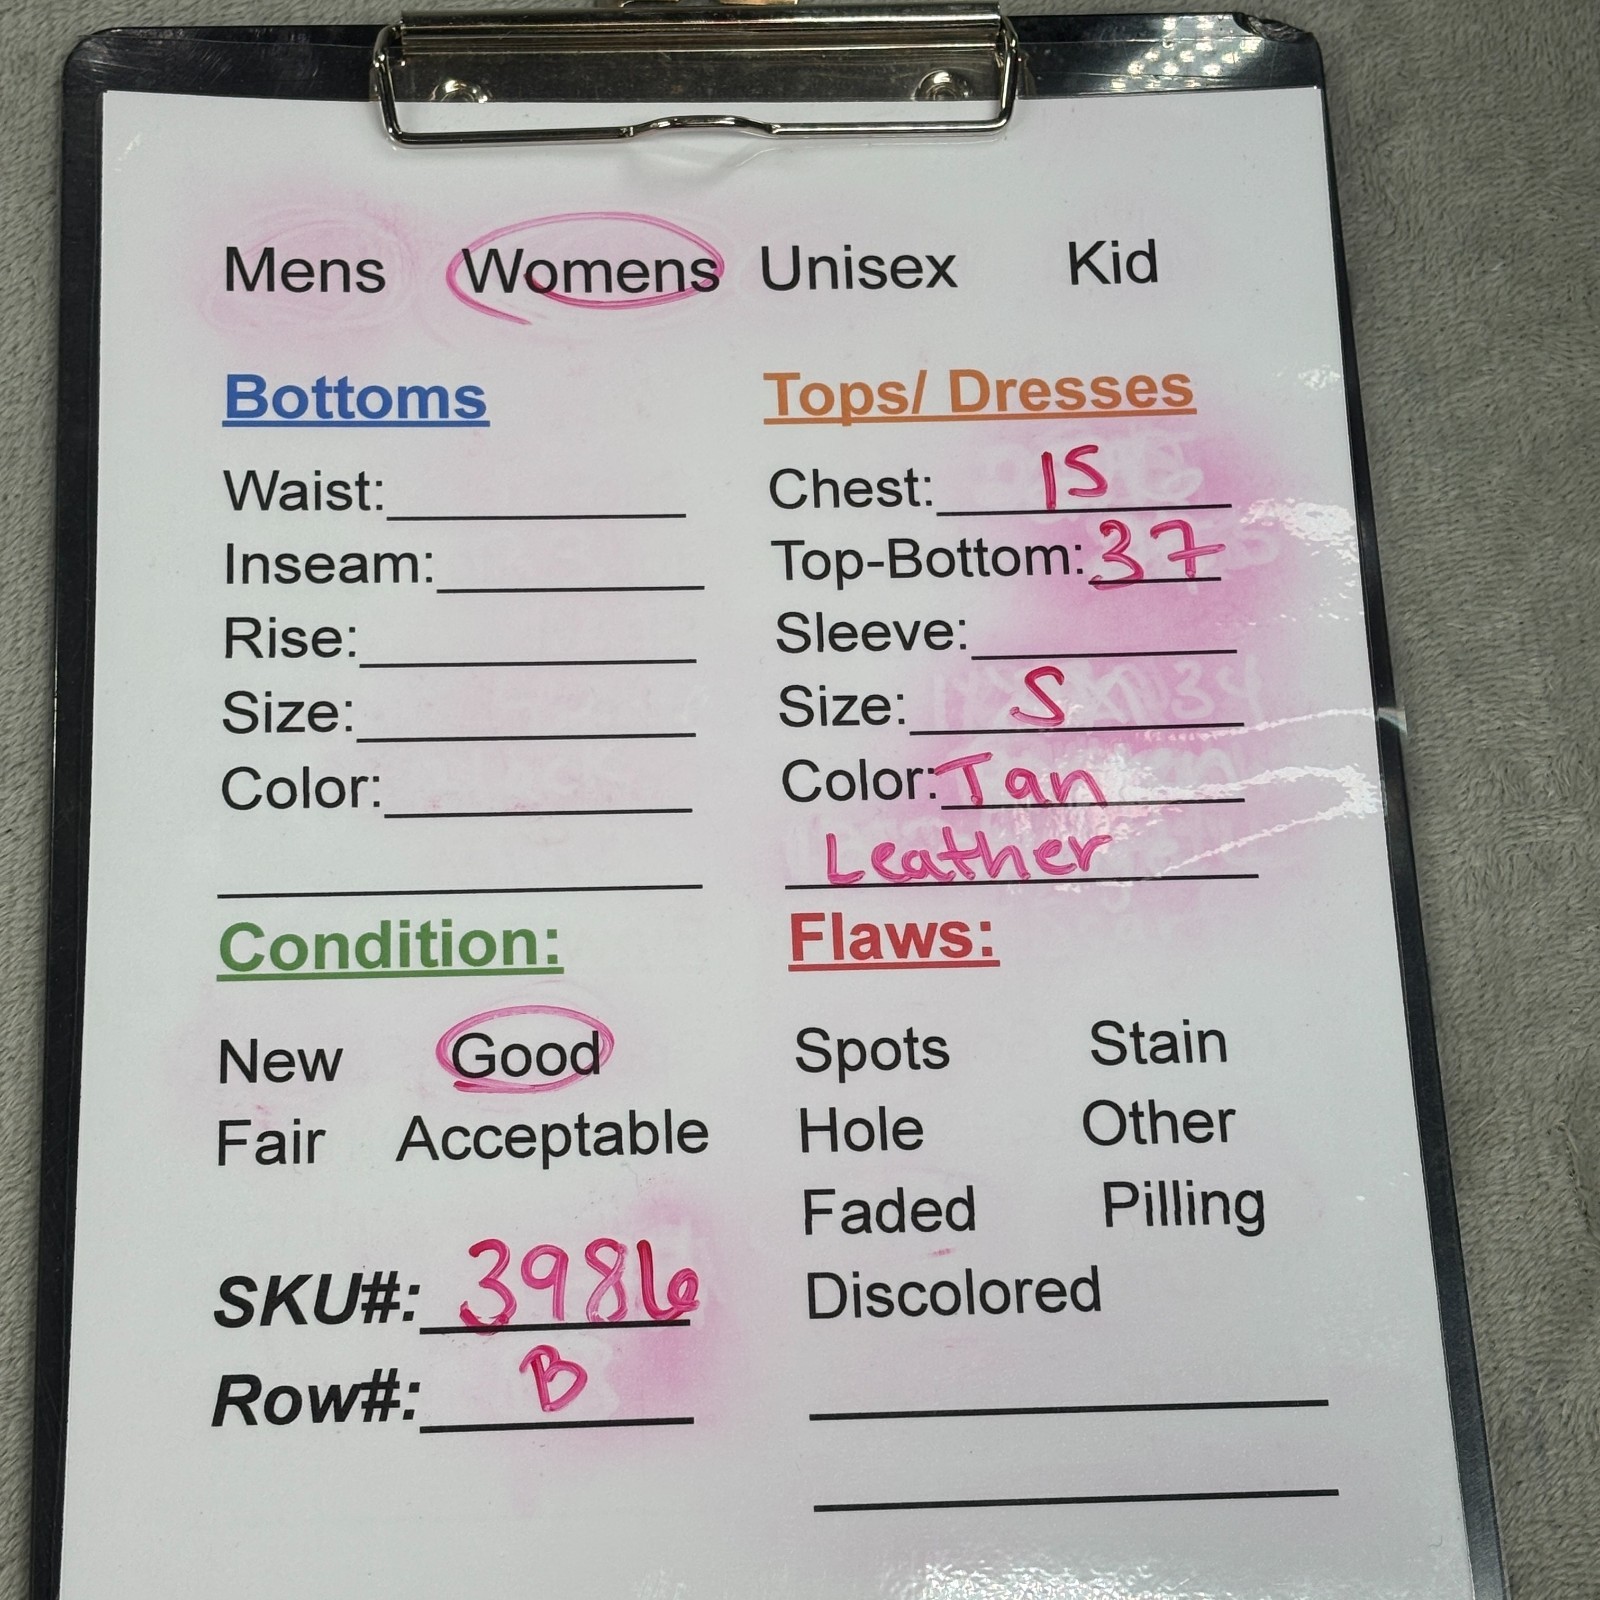 Mens Womens Unisex Kid
Bottoms
Waist:
Inseam:
Rise:
Size:
Color:
Tops/ Dresses
Chest: 15
Top-Bottom: 37
Sleeve:
Size: S
Color: Tan
Leather
Condition:
New Good
Fair Acceptable
SKU#: 3986
Row#: B
Flaws:
Spots Stain
Hole Other
Faded Pilling
Discolored